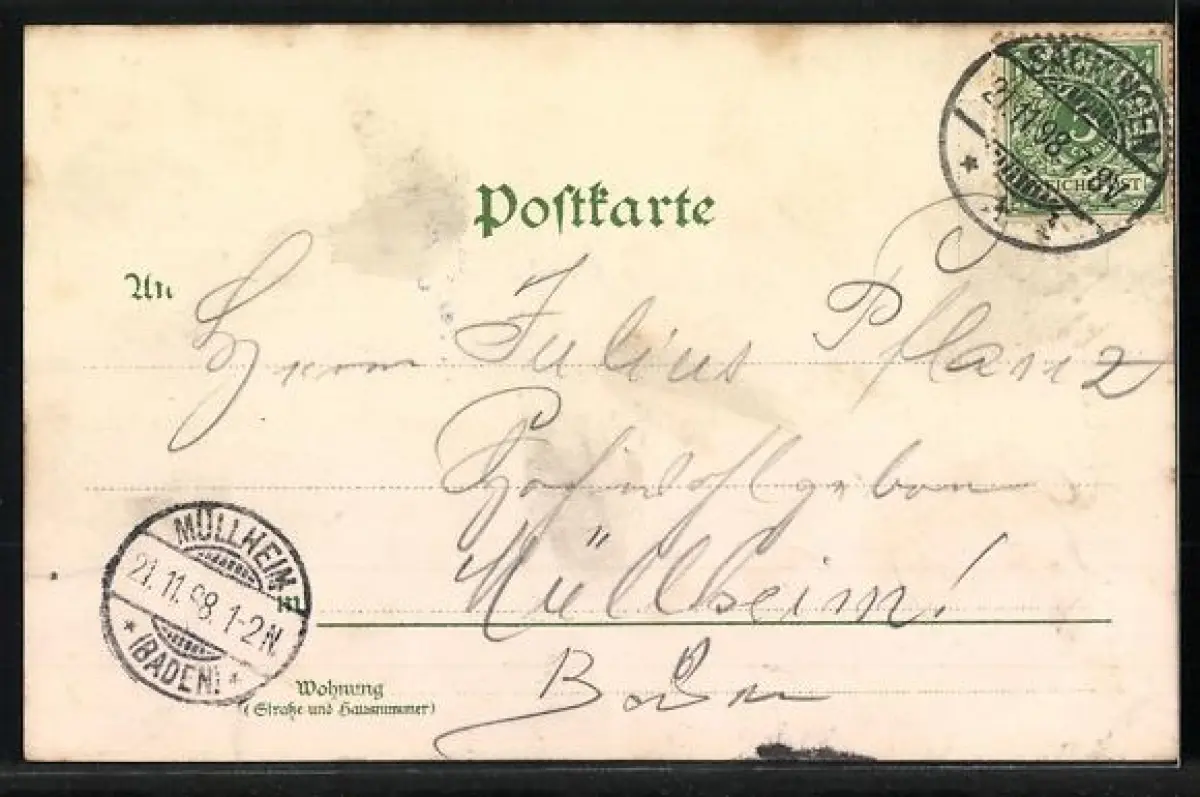 SÄCKINGEN
21.11.98.7-8V
REICHSPOST
Postkarte
An
Herrn Julius Pflanz
Hochwohlgeboren
Müllheim!
in
Baden
MÜLLHEIM
21.11.98.1-2N.
* (BADEN) *
Wohnung
(Straße und Hausnummer)